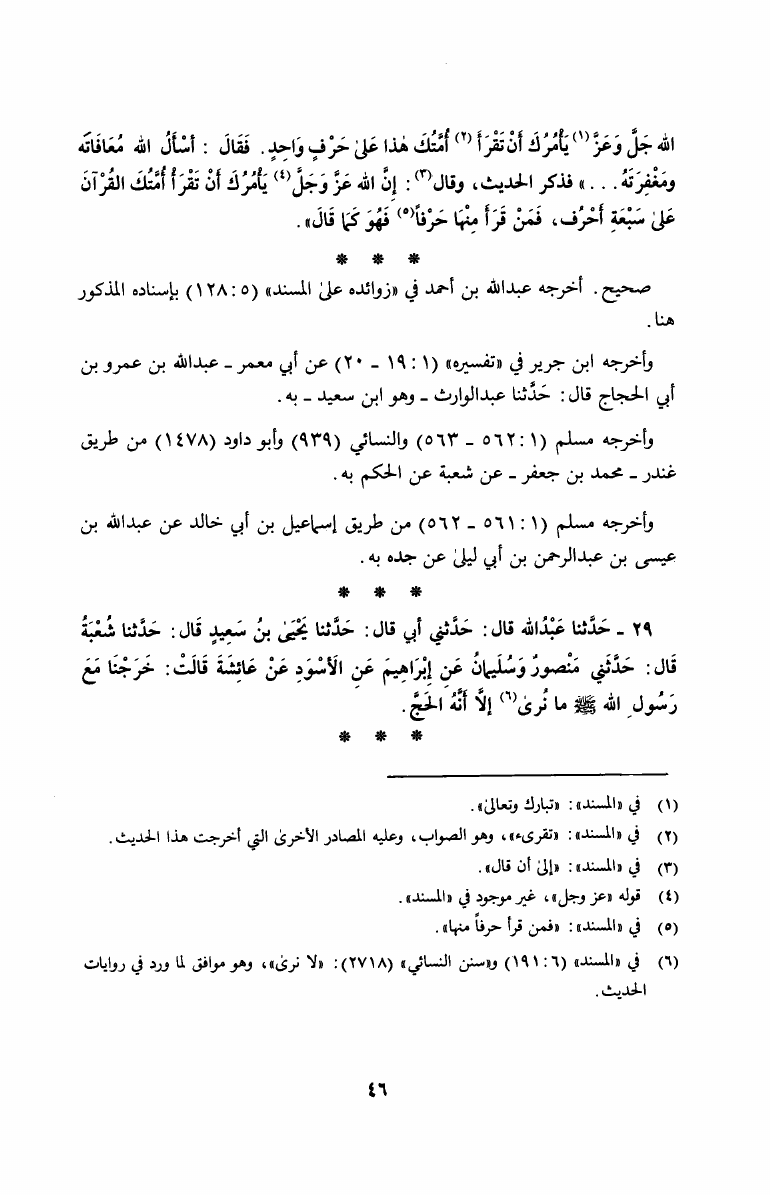 الله جَلَّ وَعَزَّ(١) يَأْمُرُكَ أَنْ تَقْرَأَ(٢) أُمَّتُكَ هٰذا عَلىٰ حَرْفٍ وَاحِدٍ. فَقَالَ: أسْأَلُ الله مُعَافَاتَه
ومَغْفِرَتَهُ. . .» فذكر الحديث، وقال(٣): إنَّ الله عَزَّ وَجَلَّ(٤) يَأْمُرُكَ أَنْ تَقْرَأَ أُمَّتُكَ القُرْآنَ
عَلىٰ سَبْعَةِ أَحْرُف، فَمَنْ قَرَأَ مِنْهَا حَرْفاً(٥) فَهُوَ كَمَا قَالَ».
* * *
صحيح. أخرجه عبدالله بن أحمد في «زوائده علىٰ المسند» (٥: ١٢٨) بإسناده المذكور
هنا.
وأخرجه ابن جرير في «تفسيره» (١: ١٩ - ٢٠) عن أبي معمر - عبدالله بن عمرو بن
أبي الحجاج قال: حَدَّثنا عبدالوارث - وهو ابن سعيد - به.
وأخرجه مسلم (١: ٥٦٢ - ٥٦٣) والنسائي (٩٣٩) وأبو داود (١٤٧٨) من طريق
غندر - محمد بن جعفر - عن شعبة عن الحكم به.
وأخرجه مسلم (١: ٥٦١ - ٥٦٢) من طريق إسماعيل بن أبي خالد عن عبدالله بن
عيسى بن عبدالرحمن بن أبي ليلىٰ عن جده به.
* * *
٢٩ - حَدَّثنا عَبْدُالله قال: حَدَّثني أبي قال: حَدَّثنا يَحْيَىٰ بنُ سَعِيدٍ قَال: حَدَّثنا شُعْبَةُ
قَال: حَدَّثَني مَنْصورٌ وَسُلَيمانُ عَنِ إبْرَاهِيمَ عَنِ الأسْوَدِ عَنْ عَائِشَةَ قَالَتْ: خَرَجْنَا مَعَ
رَسُولِ الله ﷺ ما نُرىٰ(٦) إلاَّ أَنَّهُ الحَجَّ.
* * *
(١) في «المسند»: «تبارك وتعالىٰ».
(٢) في «المسند»: «تقرىء»، وهو الصواب، وعليه المصادر الأخرىٰ التي أخرجت هذا الحديث.
(٣) في «المسند»: «إلىٰ أن قال».
(٤) قوله «عز وجل»، غير موجود في «المسند».
(٥) في «المسند»: «فمن قرأ حرفاً منها».
(٦) في «المسند» (٦: ١٩١) و«سنن النسائي» (٢٧١٨): «لا نرىٰ»، وهو موافق لما ورد في روايات
الحديث.
٤٦